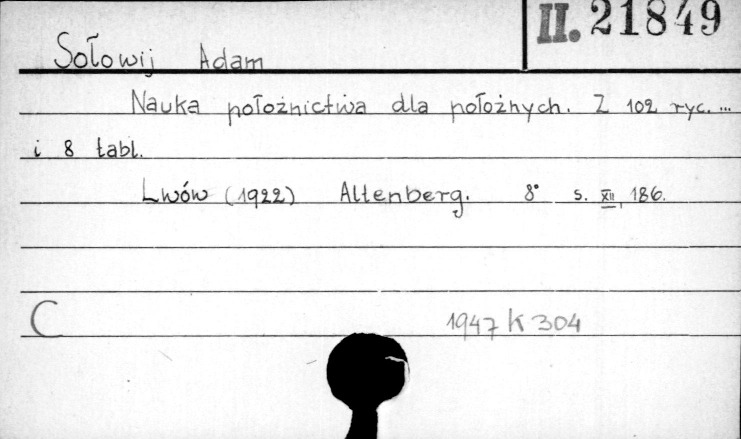 II. 21849
Sołowij Adam
Nauka położnictwa dla położnych. Z 102 ryc. ...
i 8 tabl.
Lwów (1922) Altenberg. 8° s. XII, 186.
C
1947 K 304